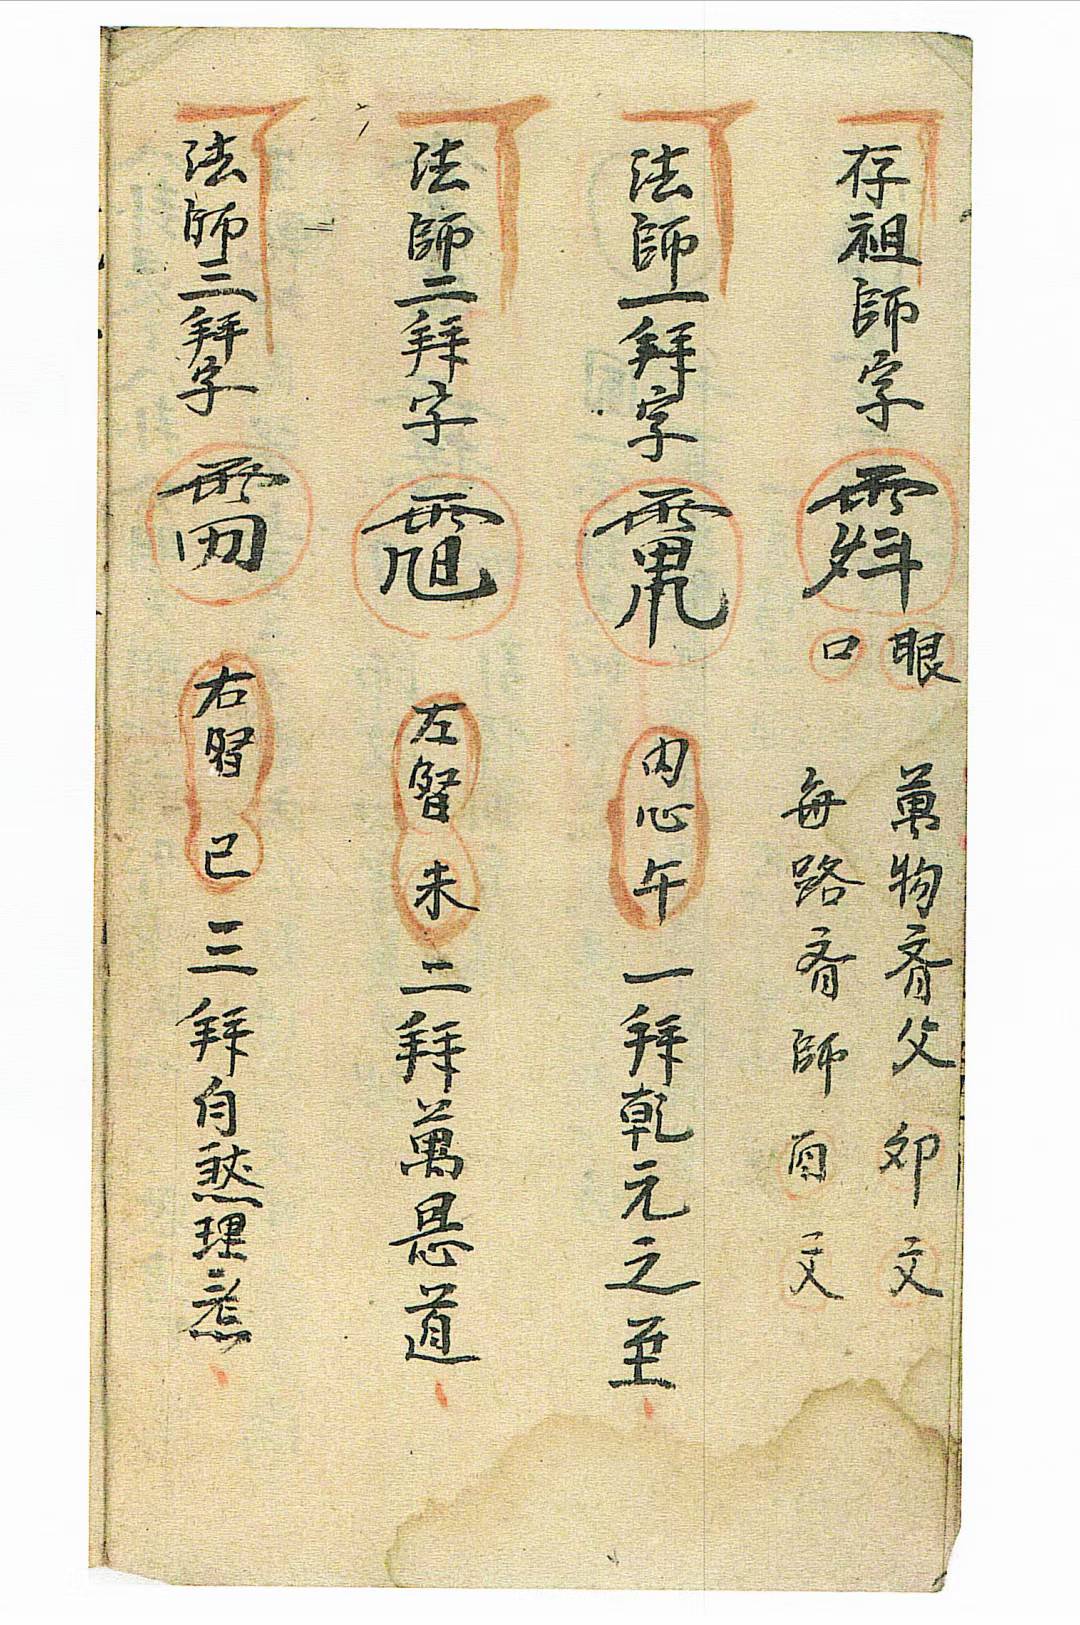 存祖師字
眼 萬物齊父 卯 文
口 每路齊師 酉 文
法師一拜字
内心午 一拜乾元之至
法師二拜字
左腎未 二拜萬恩道
法師三拜字
右腎巳 三拜自愁理